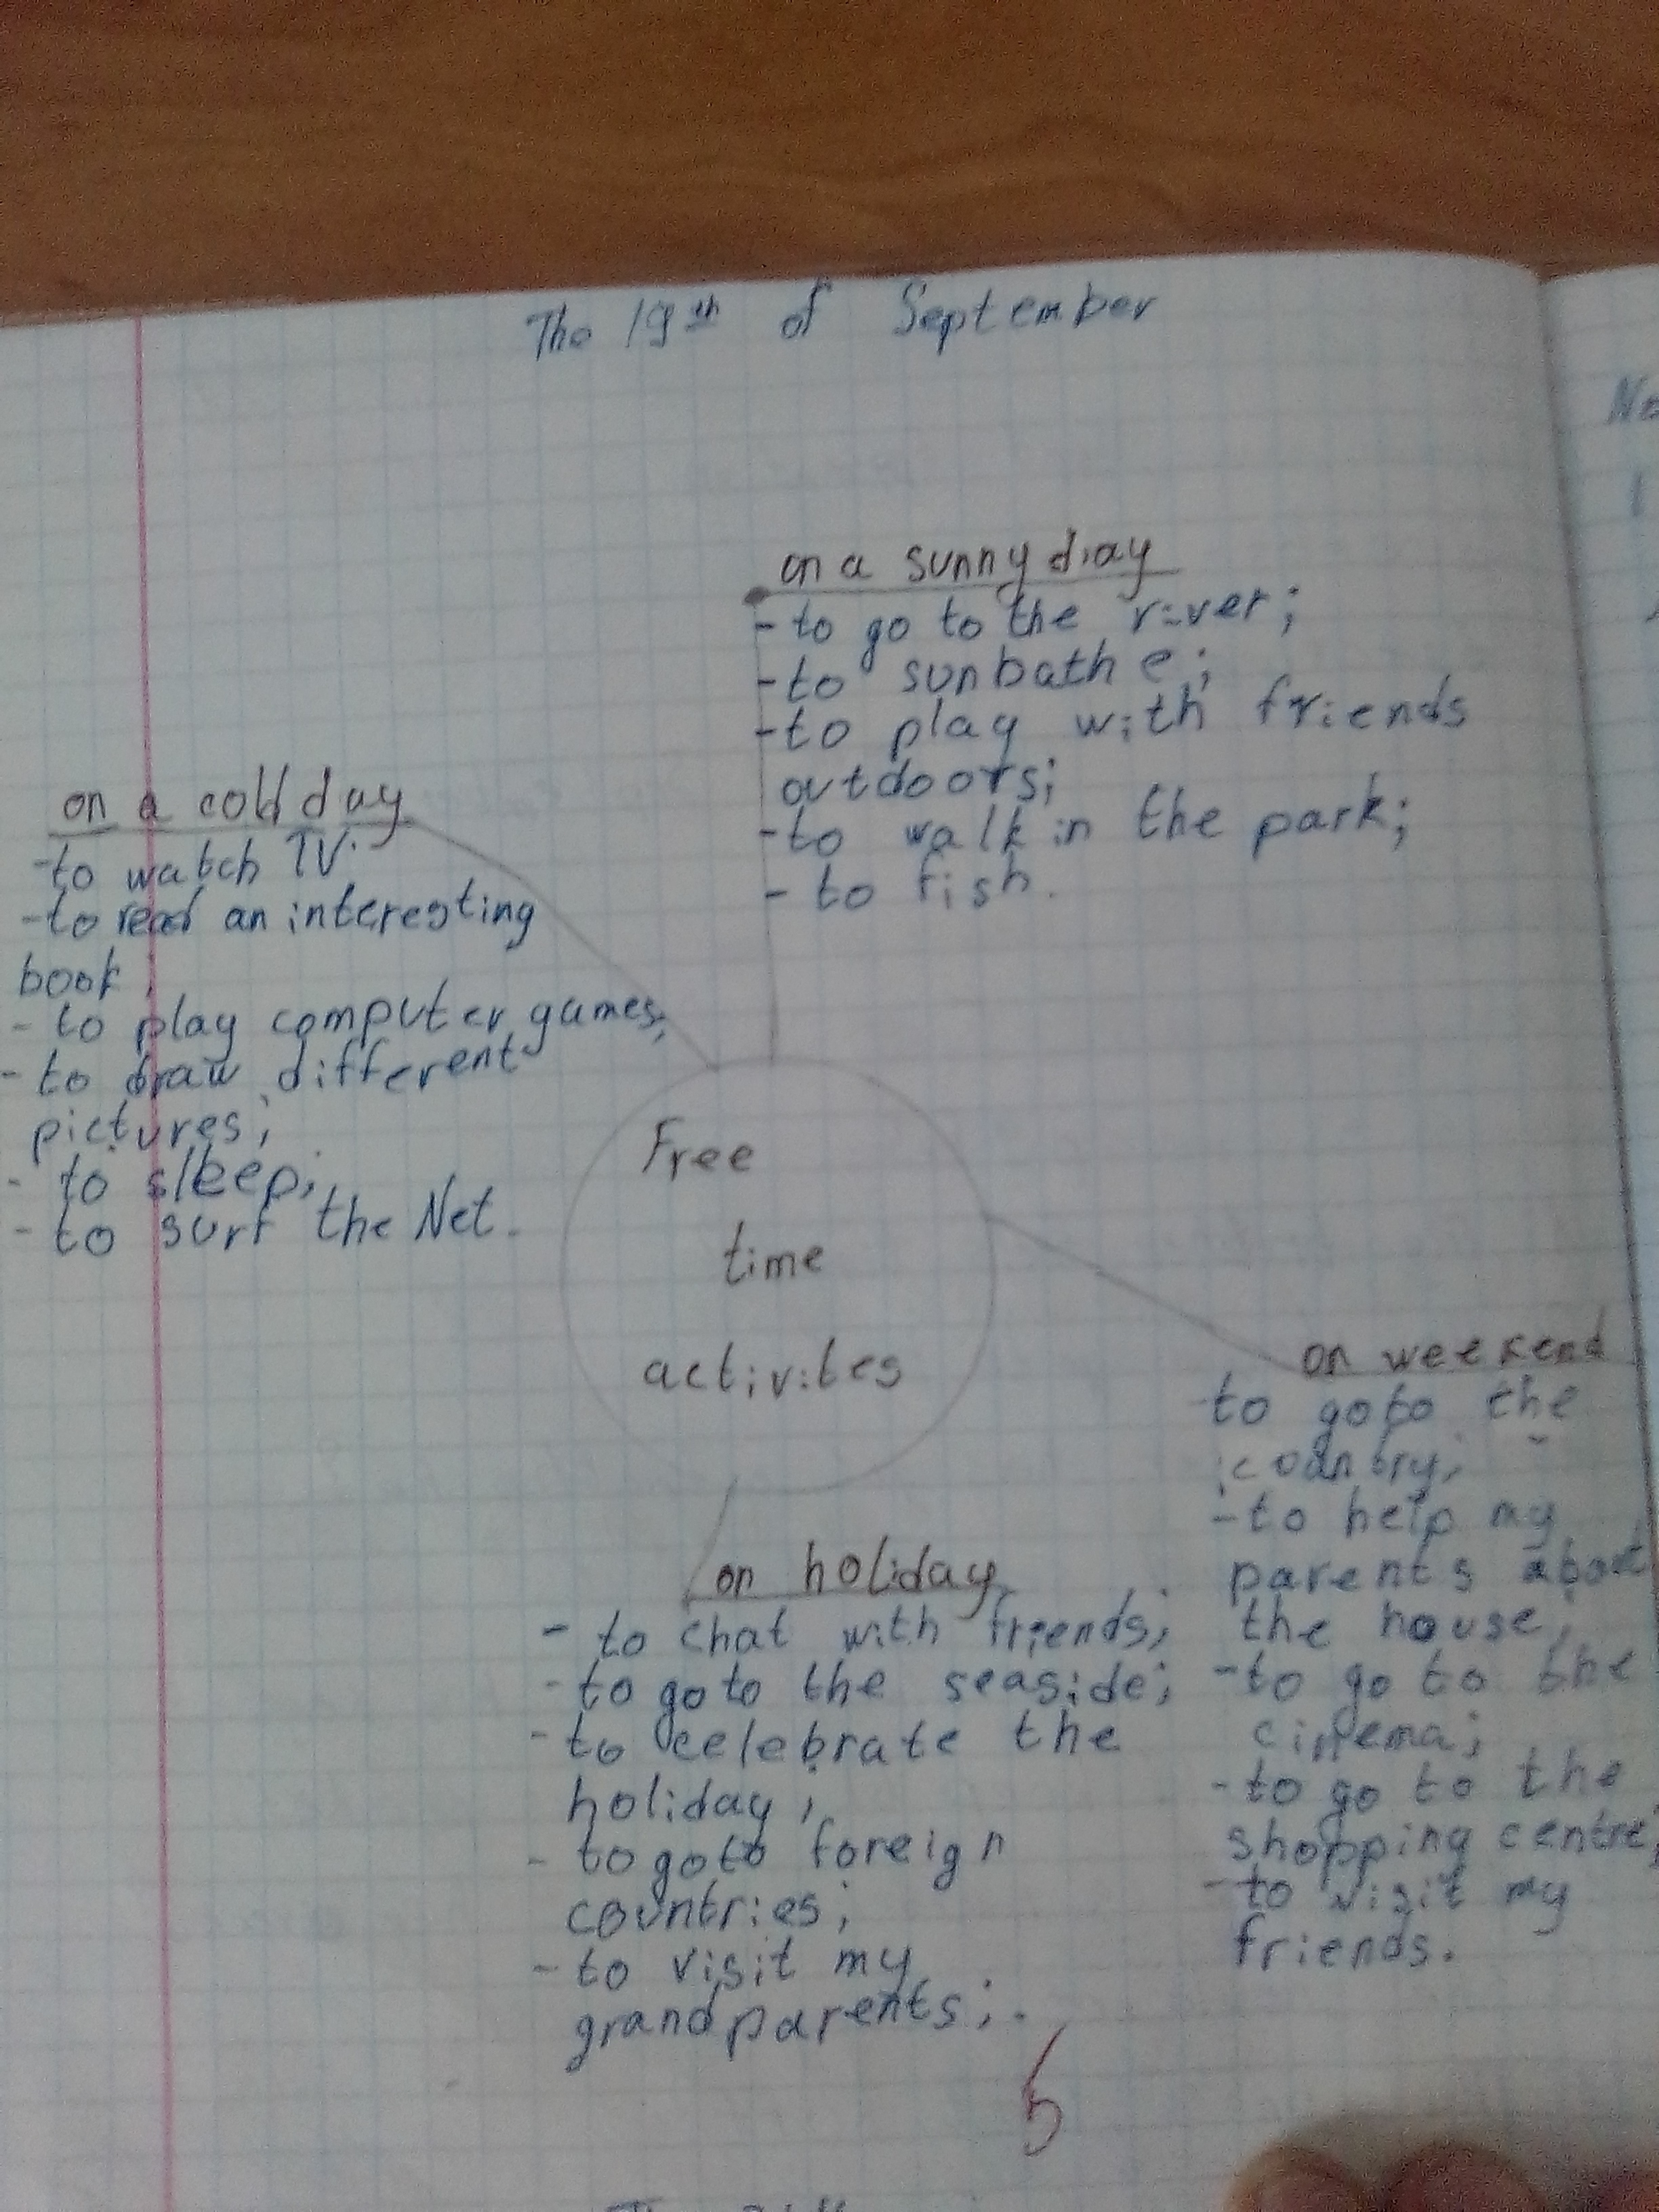 The 19th of September
on a sunny diay
- to go to the river;
- to sunbathe;
- to play with friends
outdoors;
- to walk in the park;
- to fish.
on a cold day
- to watch TV.
- to read an interesting
book;
- to play computer games;
- to draw different
pictures;
- to sleep;
- to surf the Net.
Free
time
activites
on weekend
to go to the
country;
- to help my
parents about
the house;
- to go to the
cinema;
- to go to the
shopping centre;
- to visit my
friends.
on holiday
- to chat with friends;
- to go to the seaside;
- to celebrate the
holiday;
- to go to foreign
countries;
- to visit my
grandparents;.
5